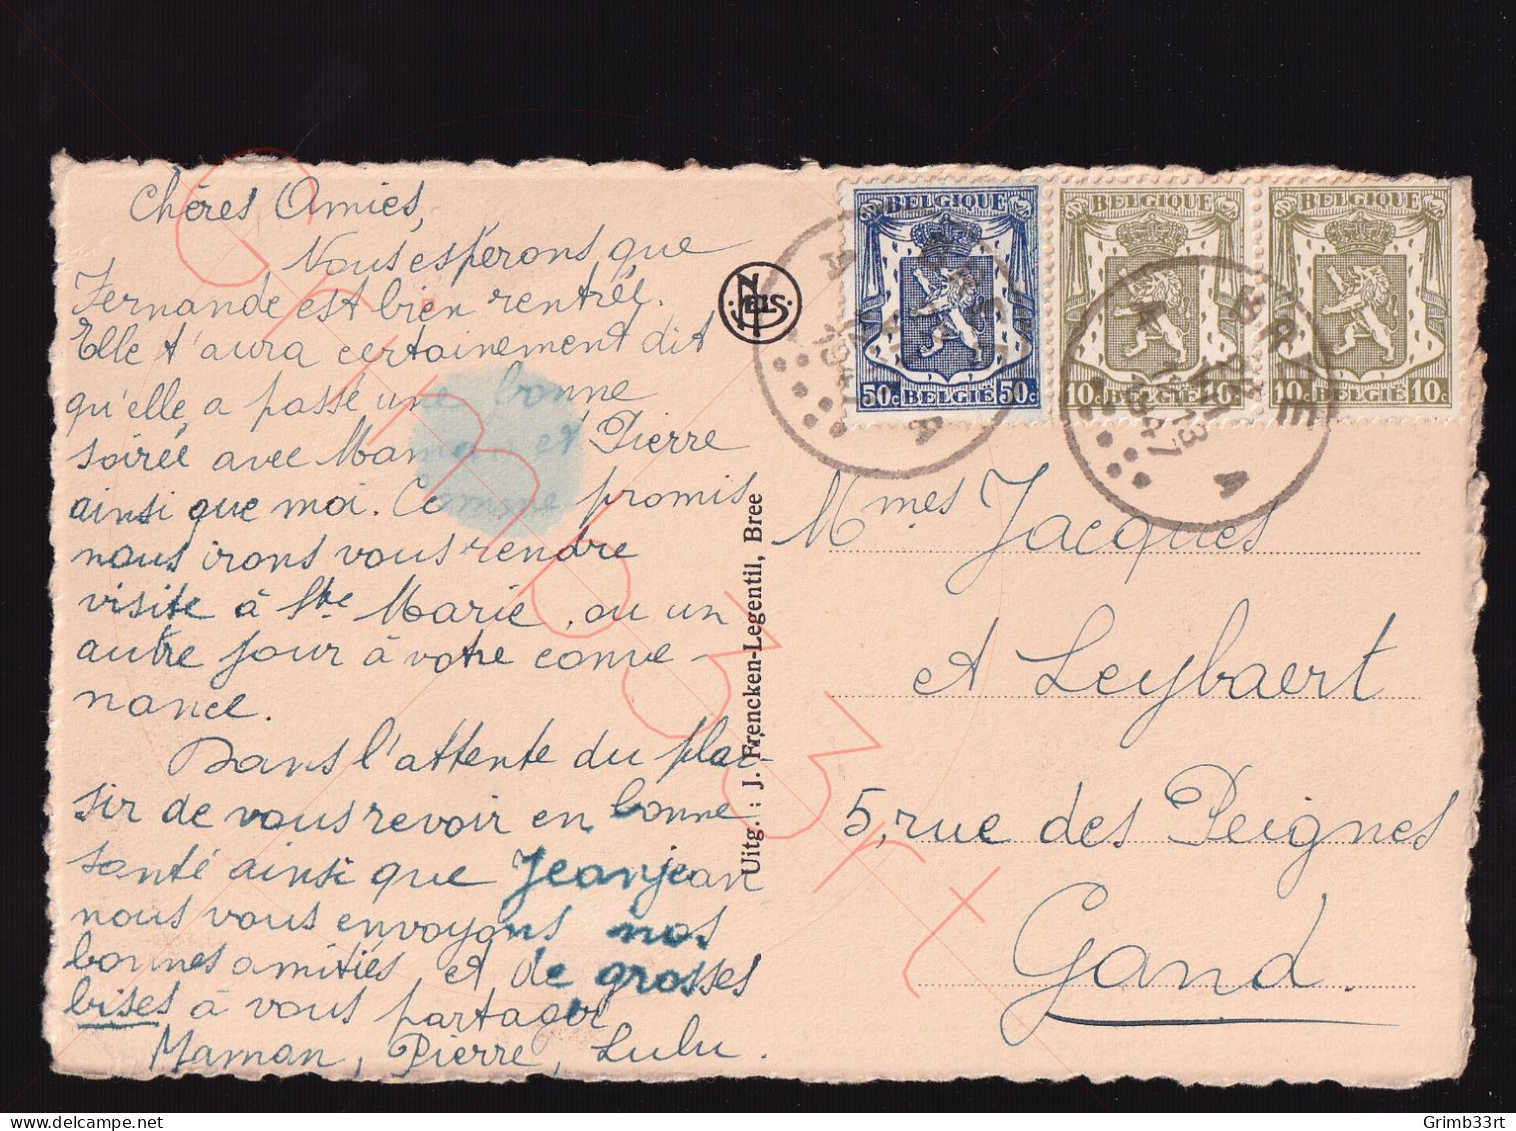 Chères Amies,
Nous espérons que
Fernande est bien rentrée.
Elle t'aura certainement dit
qu'elle a passé une bonne
soirée avec Maman et Pierre
ainsi que moi. Comme promis
nous irons vous rendre
visite à Ste Marie, ou un
autre jour à votre conve-
nance.
Dans l'attente du plai-
sir de vous revoir en bonne
santé ainsi que Jeanjean
nous vous envoyons nos
bonnes amitiés et de grosses
bises à vous partager
Maman, Pierre, Lulu.
NELS
Uitg. : J. Frencken-Legentil, Bree
BELGIQUE
50c BELGIE 50c
BELGIQUE
10c BELGIË 10c
BELGIQUE
10c BELGIË 10c
A BREE A
1947
A BREE A
13
1947
Mmes Jacques
et Leybaert
5, rue des Peignes
Gand.
Grimb33rt
Grimb33rt